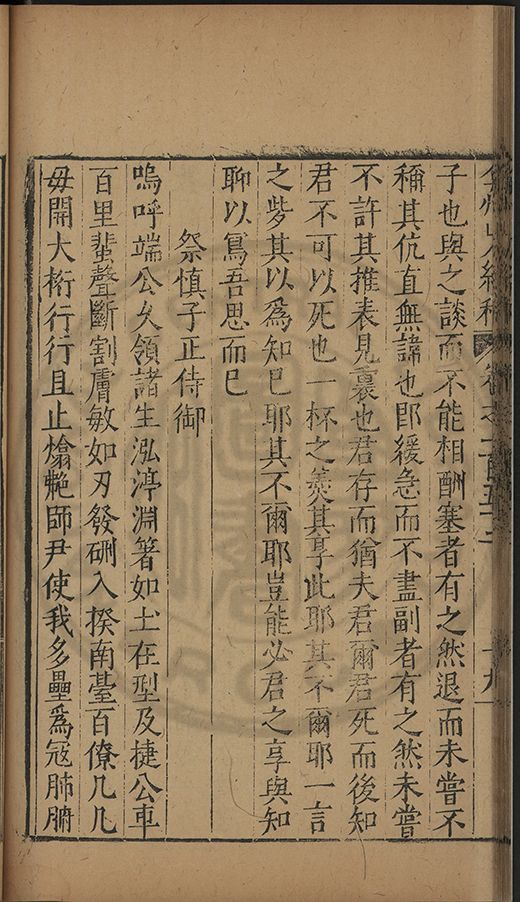 弇州山人續稿 卷之一百五十二 十九
子也與之談而不能相酬塞者有之然退而未嘗不
稱其伉直無諱也卽緩急而不盡副者有之然未嘗
不許其推表見裏也君存而猶夫君爾君死而後知
君不可以死也一杯之羮其享此耶其不爾耶一言
之訾其以爲知巳耶其不爾耶豈能必君之享與知
聊以寫吾思而巳
祭慎子正侍御
嗚呼端公夂領諸生泓渟淵箸如土在型及捷公車
百里蜚聲斷割膚敏如刃發硎入揆南臺百僚几几
毋開大桁行行且止熻艴師尹使我多壘爲冦肺腑